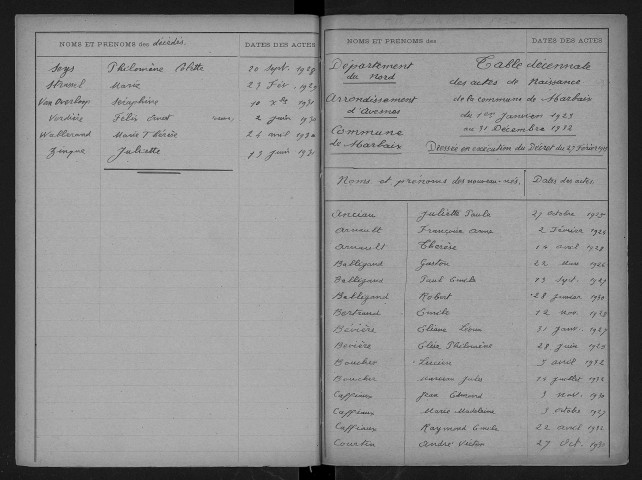 NOMS ET PRÉNOMS des décédés. DATES DES ACTES
Seys Philomène 20 Sept. 1929
Marie 23 Fév. 1929
Van Overloop Séraphine 10 Xbre
Verdière Félix 2 juin 1930
Wallerand Marie Thérèse 24 avril
Zingue Juliette 13 juin
NOMS ET PRÉNOMS des DATES DES ACTES
Département du Nord
Arrondissement d'Avesnes
Commune de Marbaix
Table décennale
des actes de Naissance
de la commune de Marbaix
du 1er Janvier 1923
au 31 Décembre 1932
Dressée en exécution du Décret du
Noms et prénoms des nouveau-nés. Dates des actes.
Anciau Juliette Paule 21 octobre 1925
Arnault Françoise Anne 2 Février 1926
Arnault Thérèse avril 1928
Ballegand Gaston 22 1926
Ballegand Paul Emile 13 Sept.
Ballegand Robert 28 janvier 1930
Bertrand Emile 12 nov.
Bévière Eliane 31 janv. 1927
Bévière Philomène 28 juin 1923
Boucher Lucien 3 avril 1932
Boucher Jules juillet 1932
Caffiaux Jean Edmond 3 nov. 1930
Caffiaux Marie Madeleine 3 octobre 1927
Caffiaux Raymond Emile 22 avril 1932
Courtin André Victor 27 Oct.